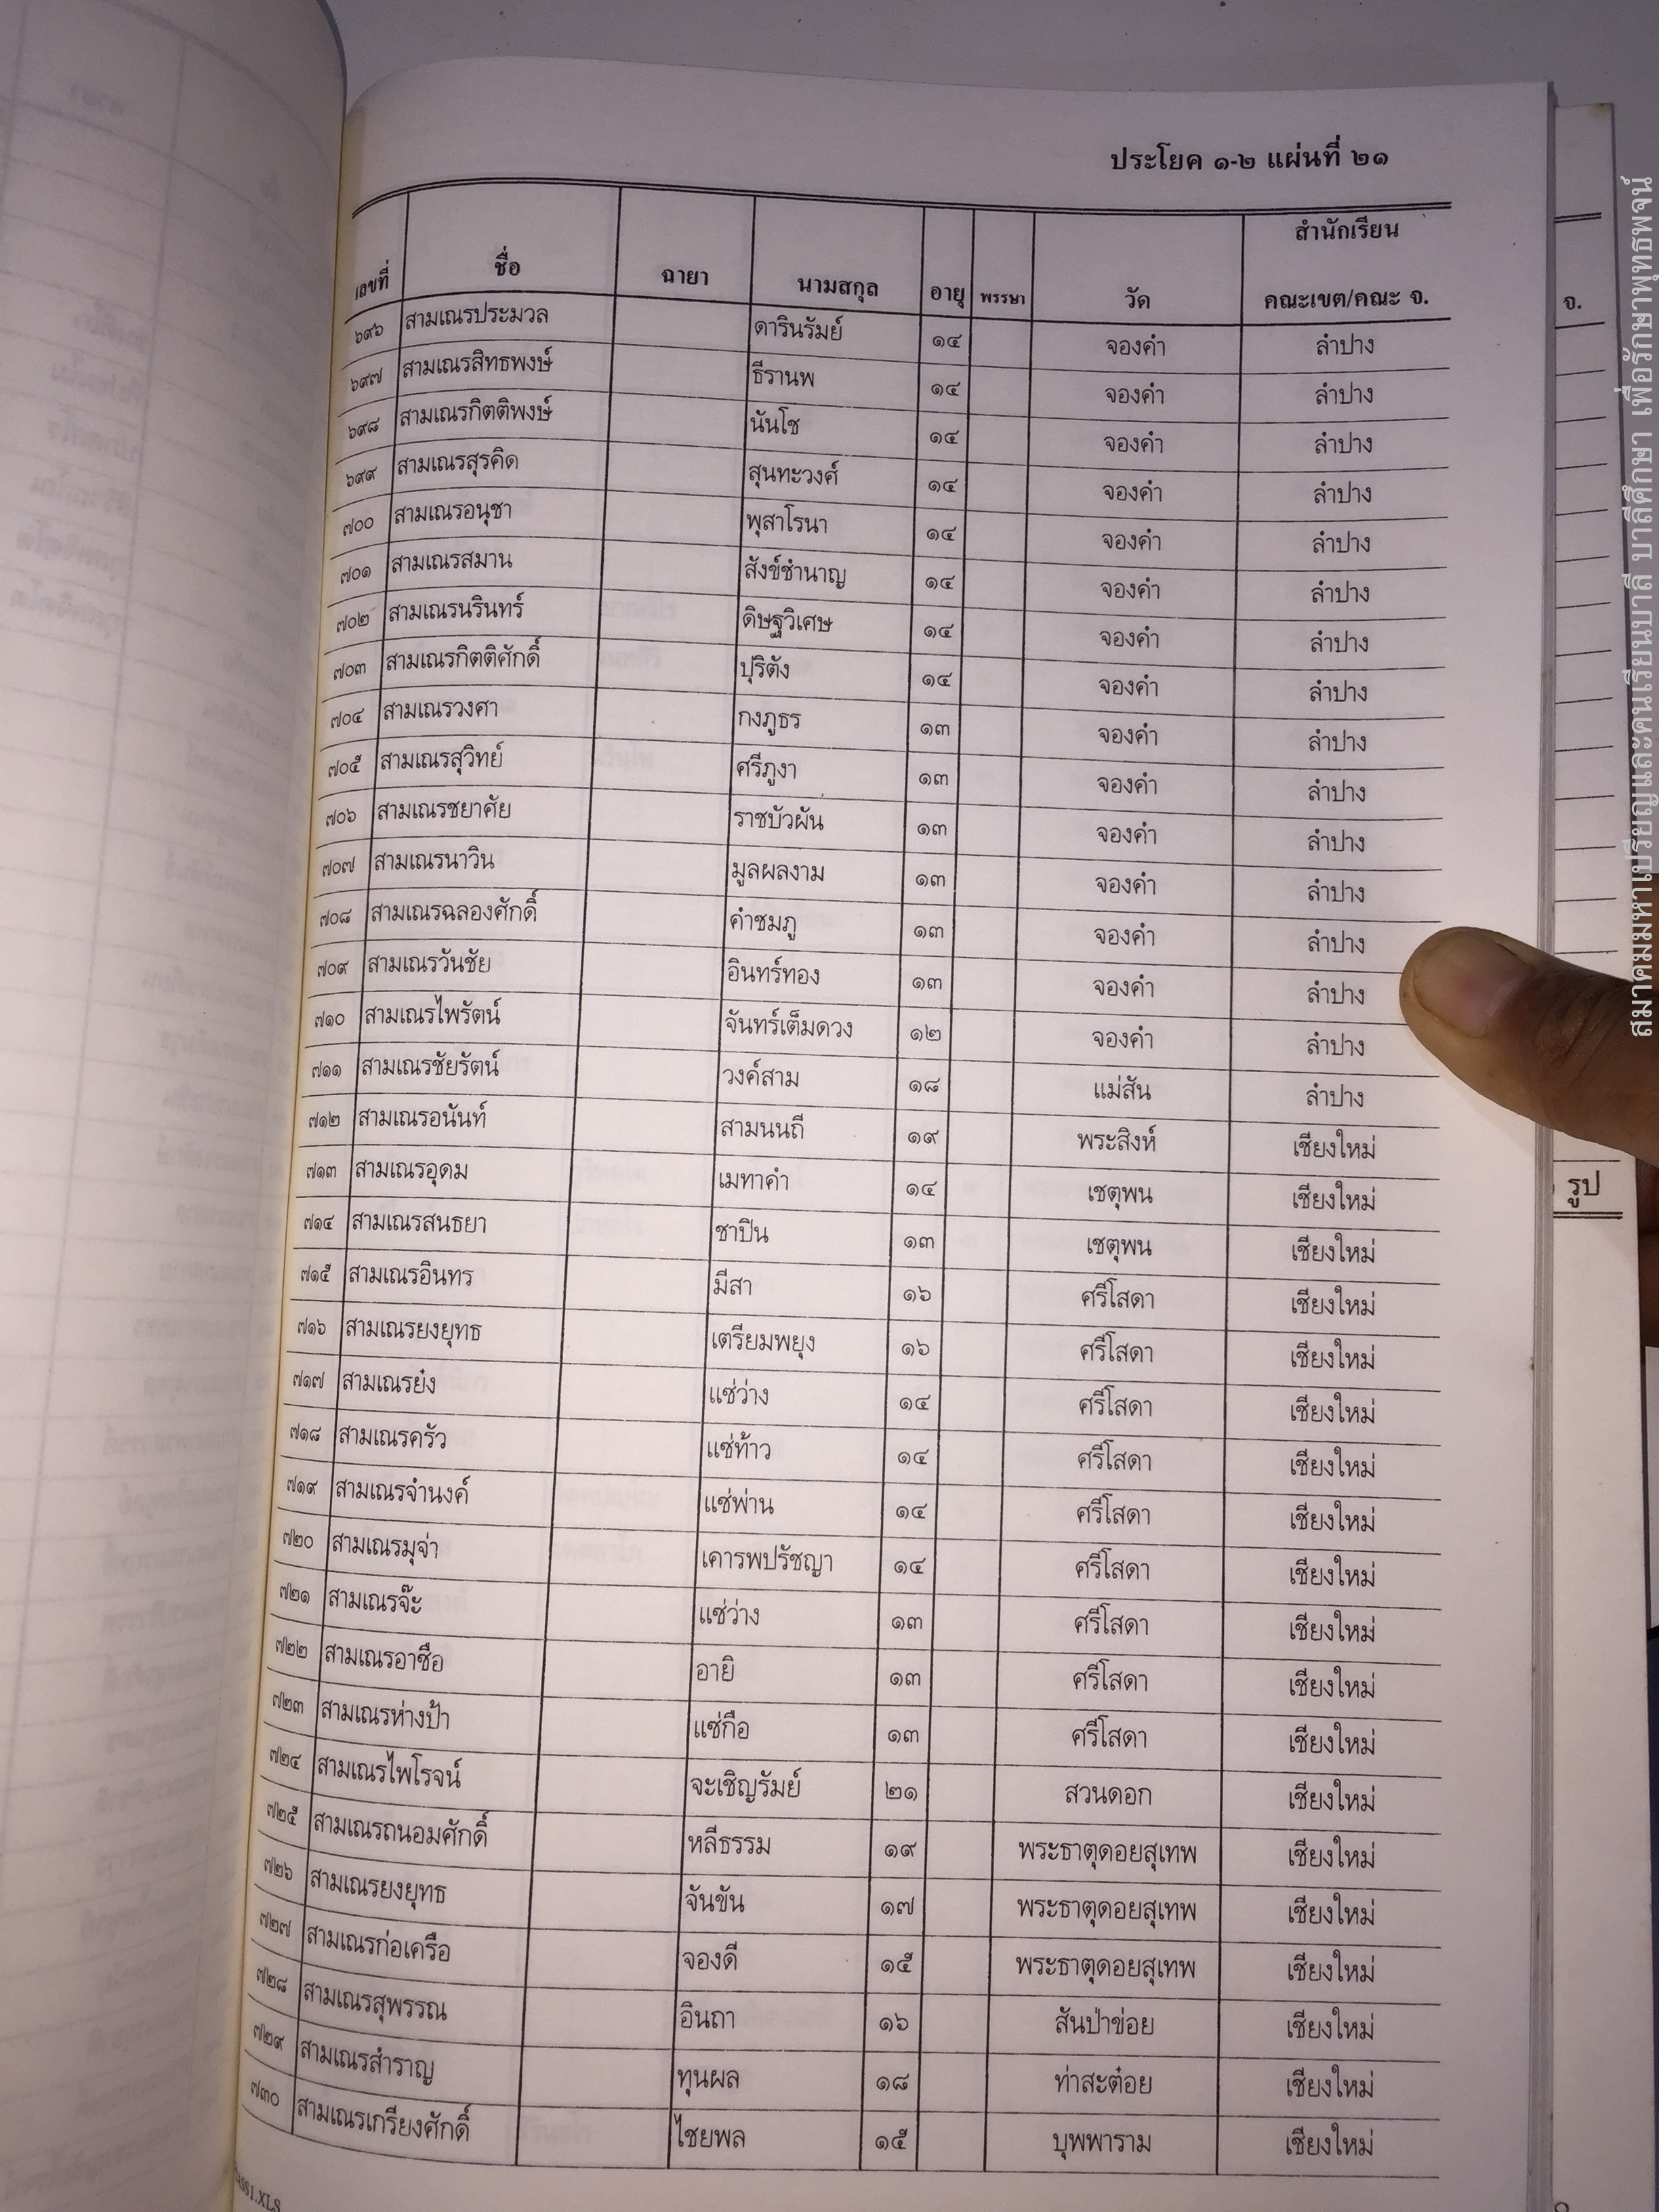 ประโยค ๑-๒ แผ่นที่ ๒๑
เลขที่ ชื่อ ฉายา นามสกุล อายุ พรรษา วัด สำนักเรียน คณะเขต/คณะ จ.
๖๙๖ สามเณรประมวล ดารินรัมย์ ๑๔ จองคำ ลำปาง
๖๙๗ สามเณรสิทธพงษ์ ธีรานพ ๑๔ จองคำ ลำปาง
๖๙๘ สามเณรกิตติพงษ์ นันโช ๑๔ จองคำ ลำปาง
๖๙๙ สามเณรสุรคิด สุนทะวงศ์ ๑๔ จองคำ ลำปาง
๗๐๐ สามเณรอนุชา พุสาโรนา ๑๔ จองคำ ลำปาง
๗๐๑ สามเณรสมาน สังข์ชำนาญ ๑๔ จองคำ ลำปาง
๗๐๒ สามเณรนรินทร์ ดิษฐวิเศษ ๑๔ จองคำ ลำปาง
๗๐๓ สามเณรกิตติศักดิ์ ปุริตัง ๑๔ จองคำ ลำปาง
๗๐๔ สามเณรวงศา กงภูธร ๑๓ จองคำ ลำปาง
๗๐๕ สามเณรสุวิทย์ ศรีภูงา ๑๓ จองคำ ลำปาง
๗๐๖ สามเณรชยาศัย ราชบัวผัน ๑๓ จองคำ ลำปาง
๗๐๗ สามเณรนาวิน มูลผลงาม ๑๓ จองคำ ลำปาง
๗๐๘ สามเณรฉลองศักดิ์ คำชมภู ๑๓ จองคำ ลำปาง
๗๐๙ สามเณรวันชัย อินทร์ทอง ๑๓ จองคำ ลำปาง
๗๑๐ สามเณรไพรัตน์ จันทร์เต็มดวง ๑๒ จองคำ ลำปาง
๗๑๑ สามเณรชัยรัตน์ วงค์สาม ๑๘ แม่สัน ลำปาง
๗๑๒ สามเณรอนันท์ สามนนถี ๑๙ พระสิงห์ เชียงใหม่
๗๑๓ สามเณรอุดม เมทาคำ ๑๔ เชตุพน เชียงใหม่
๗๑๔ สามเณรสนธยา ชาปิน ๑๓ เชตุพน เชียงใหม่
๗๑๕ สามเณรอินทร มีสา ๑๖ ศรีโสดา เชียงใหม่
๗๑๖ สามเณรยงยุทธ เตรียมพยุง ๑๖ ศรีโสดา เชียงใหม่
๗๑๗ สามเณรย๋ง แซ่ว่าง ๑๔ ศรีโสดา เชียงใหม่
๗๑๘ สามเณรครัว แซ่ท้าว ๑๔ ศรีโสดา เชียงใหม่
๗๑๙ สามเณรจำนงค์ แซ่พ่าน ๑๔ ศรีโสดา เชียงใหม่
๗๒๐ สามเณรมุจ่า เคารพปรัชญา ๑๔ ศรีโสดา เชียงใหม่
๗๒๑ สามเณรจ๊ะ แซ่ว่าง ๑๓ ศรีโสดา เชียงใหม่
๗๒๒ สามเณรอาซือ อายิ ๑๓ ศรีโสดา เชียงใหม่
๗๒๓ สามเณรห่างป้า แซ่กือ ๑๓ ศรีโสดา เชียงใหม่
๗๒๔ สามเณรไพโรจน์ จะเชิญรัมย์ ๒๑ สวนดอก เชียงใหม่
๗๒๕ สามเณรถนอมศักดิ์ หลีธรรม ๑๙ พระธาตุดอยสุเทพ เชียงใหม่
๗๒๖ สามเณรยงยุทธ จันขัน ๑๗ พระธาตุดอยสุเทพ เชียงใหม่
๗๒๗ สามเณรก่อเครือ จองดี ๑๕ พระธาตุดอยสุเทพ เชียงใหม่
๗๒๘ สามเณรสุพรรณ อินถา ๑๖ สันป่าข่อย เชียงใหม่
๗๒๙ สามเณรสำราญ ทุนผล ๑๘ ท่าสะต๋อย เชียงใหม่
๗๓๐ สามเณรเกรียงศักดิ์ ไชยพล ๑๕ บุพพาราม เชียงใหม่
จ.
รูป
สมาคมมหาเปรียญและคนเรียนบาลี บาลีศึกษา เพื่อรักษาพุทธพจน์